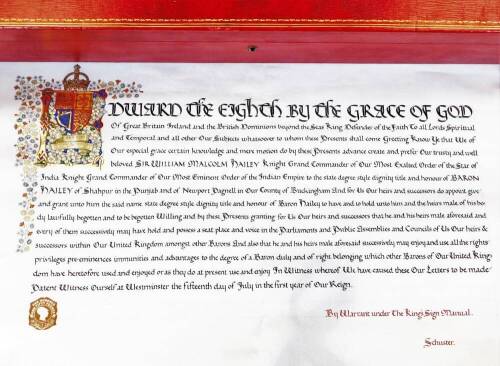 EDWARD the EIGHTH BY the GRACE OF GOD
Of Great Britain Ireland and the British Dominions beyond the Seas King Defender of the Faith To all Lords Spiritual
and Temporal and all other Our Subjects whatsoever to whom these Presents shall come Greeting Know Ye that We of
Our especial grace certain knowledge and mere motion do by these Presents advance create and prefer Our trusty and well
beloved SIR WILLIAM MALCOLM HAILEY Knight Grand Commander of Our Most Exalted Order of the Star of
India Knight Grand Commander of Our Most Eminent Order of the Indian Empire to the state degree style dignity title and honour of BARON
HAILEY of Shahpur in the Punjab and of Newport Pagnell in Our County of Buckingham And for Us Our heirs and successors do appoint give
and grant unto him the said name state degree style dignity title and honour of Baron Hailey to have and to hold unto him and the heirs male of his bo
dy lawfully begotten and to be begotten Willing and by these Presents granting for Us Our heirs and successors that he and his heirs male aforesaid and
every of them successively may have hold and possess a seat place and voice in the Parliaments and Public Assemblies and Councils of Us Our heirs &
successors within Our United Kingdom amongst other Barons And also that he and his heirs male aforesaid successively may enjoy and use all the rights
privileges pre-eminences immunities and advantages to the degree of a Baron duly and of right belonging which other Barons of Our United King
dom have heretofore used and enjoyed or as they do at present use and enjoy In Witness whereof We have caused these Our Letters to be made
Patent Witness Ourself at Westminster the fifteenth day of July in the first year of Our Reign.
By Warrant under The Kings Sign Manual.
Schuster.